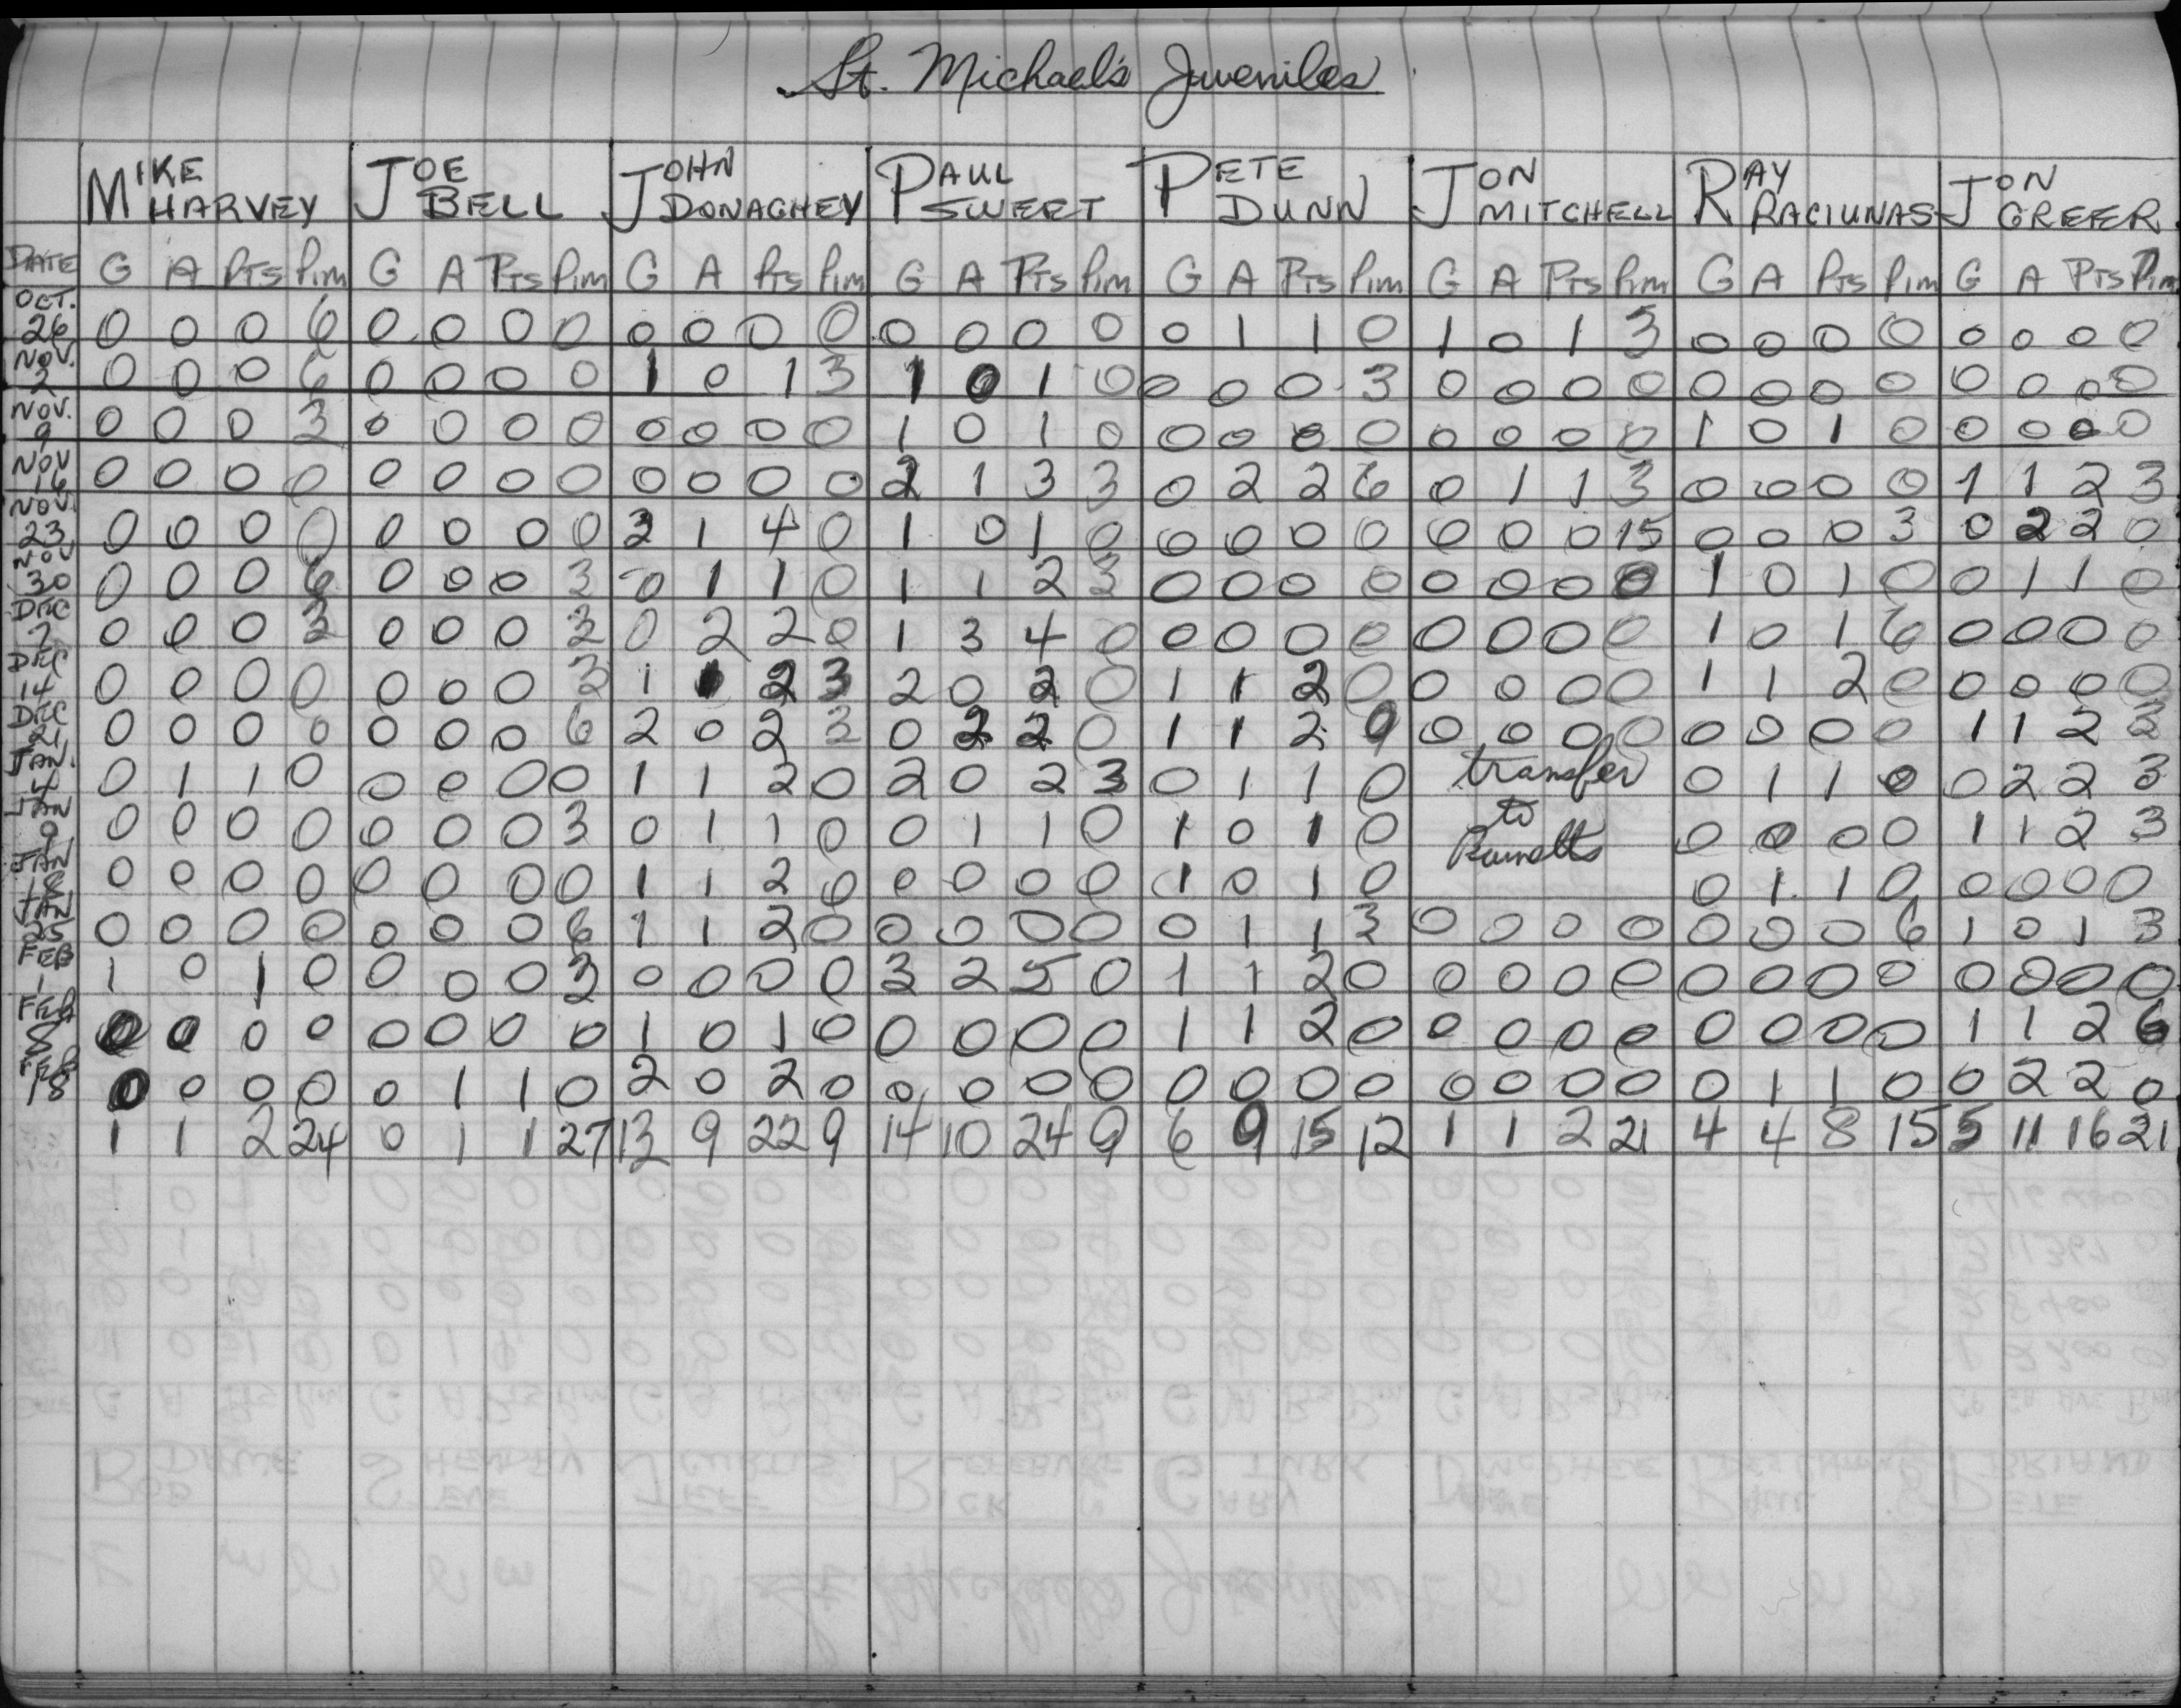 St. Michael's Juveniles
MIKE HARVEY JOE BELL JOHN DONAGHEY PAUL SWEET PETE DUNN JON MITCHELL RAY RACIUNAS JON GREFER
DATE G A Pts Pim G A Pts Pim G A Pts Pim G A Pts Pim G A Pts Pim G A Pts Pim G A Pts Pim G A Pts Pim
OCT. 26 0 0 0 6 0 0 0 0 0 0 0 0 0 0 0 0 0 1 1 0 1 0 1 3 0 0 0 0 0 0 0 0
NOV. 2 0 0 0 6 0 0 0 0 1 0 1 3 1 0 1 0 0 0 0 3 0 0 0 0 0 0 0 0 0 0 0 0
NOV. 9 0 0 0 3 0 0 0 0 0 0 0 0 1 0 1 0 0 0 0 0 0 0 0 0 1 0 1 0 0 0 0 0
NOV 16 0 0 0 0 0 0 0 0 0 0 0 0 2 1 3 3 0 2 2 6 0 1 1 3 0 0 0 0 1 1 2 3
NOV. 23 0 0 0 0 0 0 0 0 3 1 4 0 1 0 1 0 0 0 0 0 0 0 0 15 0 0 0 3 0 2 2 0
NOV 30 0 0 0 6 0 0 0 3 0 1 1 0 1 1 2 3 0 0 0 0 0 0 0 0 1 0 1 0 0 1 1 0
DEC 7 0 0 0 3 0 0 0 3 0 2 2 0 1 3 4 0 0 0 0 0 0 0 0 0 1 0 1 6 0 0 0 0
DEC 14 0 0 0 0 0 0 0 3 1 1 2 3 2 0 2 0 1 1 2 0 0 0 0 0 1 1 2 0 0 0 0 0
DEC 21 0 0 0 0 0 0 0 6 2 0 2 3 0 2 2 0 1 1 2 0 0 0 0 0 0 0 0 0 1 1 2 3
JAN. 4 0 1 1 0 0 0 0 0 1 1 2 0 2 0 2 3 0 1 1 0 transfer 0 1 1 0 0 2 2 3
JAN 9 0 0 0 0 0 0 0 3 0 1 1 0 0 1 1 0 1 0 1 0 to 0 0 0 0 1 1 2 3
JAN 18 0 0 0 0 0 0 0 0 1 1 2 0 0 0 0 0 1 0 1 0 0 1 1 0 0 0 0 0
JAN 25 0 0 0 0 0 0 0 6 1 1 2 0 0 0 0 0 0 1 1 3 0 0 0 0 0 0 0 6 1 0 1 3
FEB 1 1 0 1 0 0 0 0 3 0 0 0 0 3 2 5 0 1 1 2 0 0 0 0 0 0 0 0 0 0 0 0 0
FEB 8 0 0 0 0 0 0 0 0 1 0 1 0 0 0 0 0 1 1 2 0 0 0 0 0 0 0 0 0 1 1 2 6
FEB 18 0 0 0 0 0 1 1 0 2 0 2 0 0 0 0 0 0 0 0 0 0 0 0 0 0 1 1 0 0 2 2 0
1 1 2 24 0 1 1 27 13 9 22 9 14 10 24 9 6 9 15 12 1 1 2 21 4 4 8 15 5 11 16 21